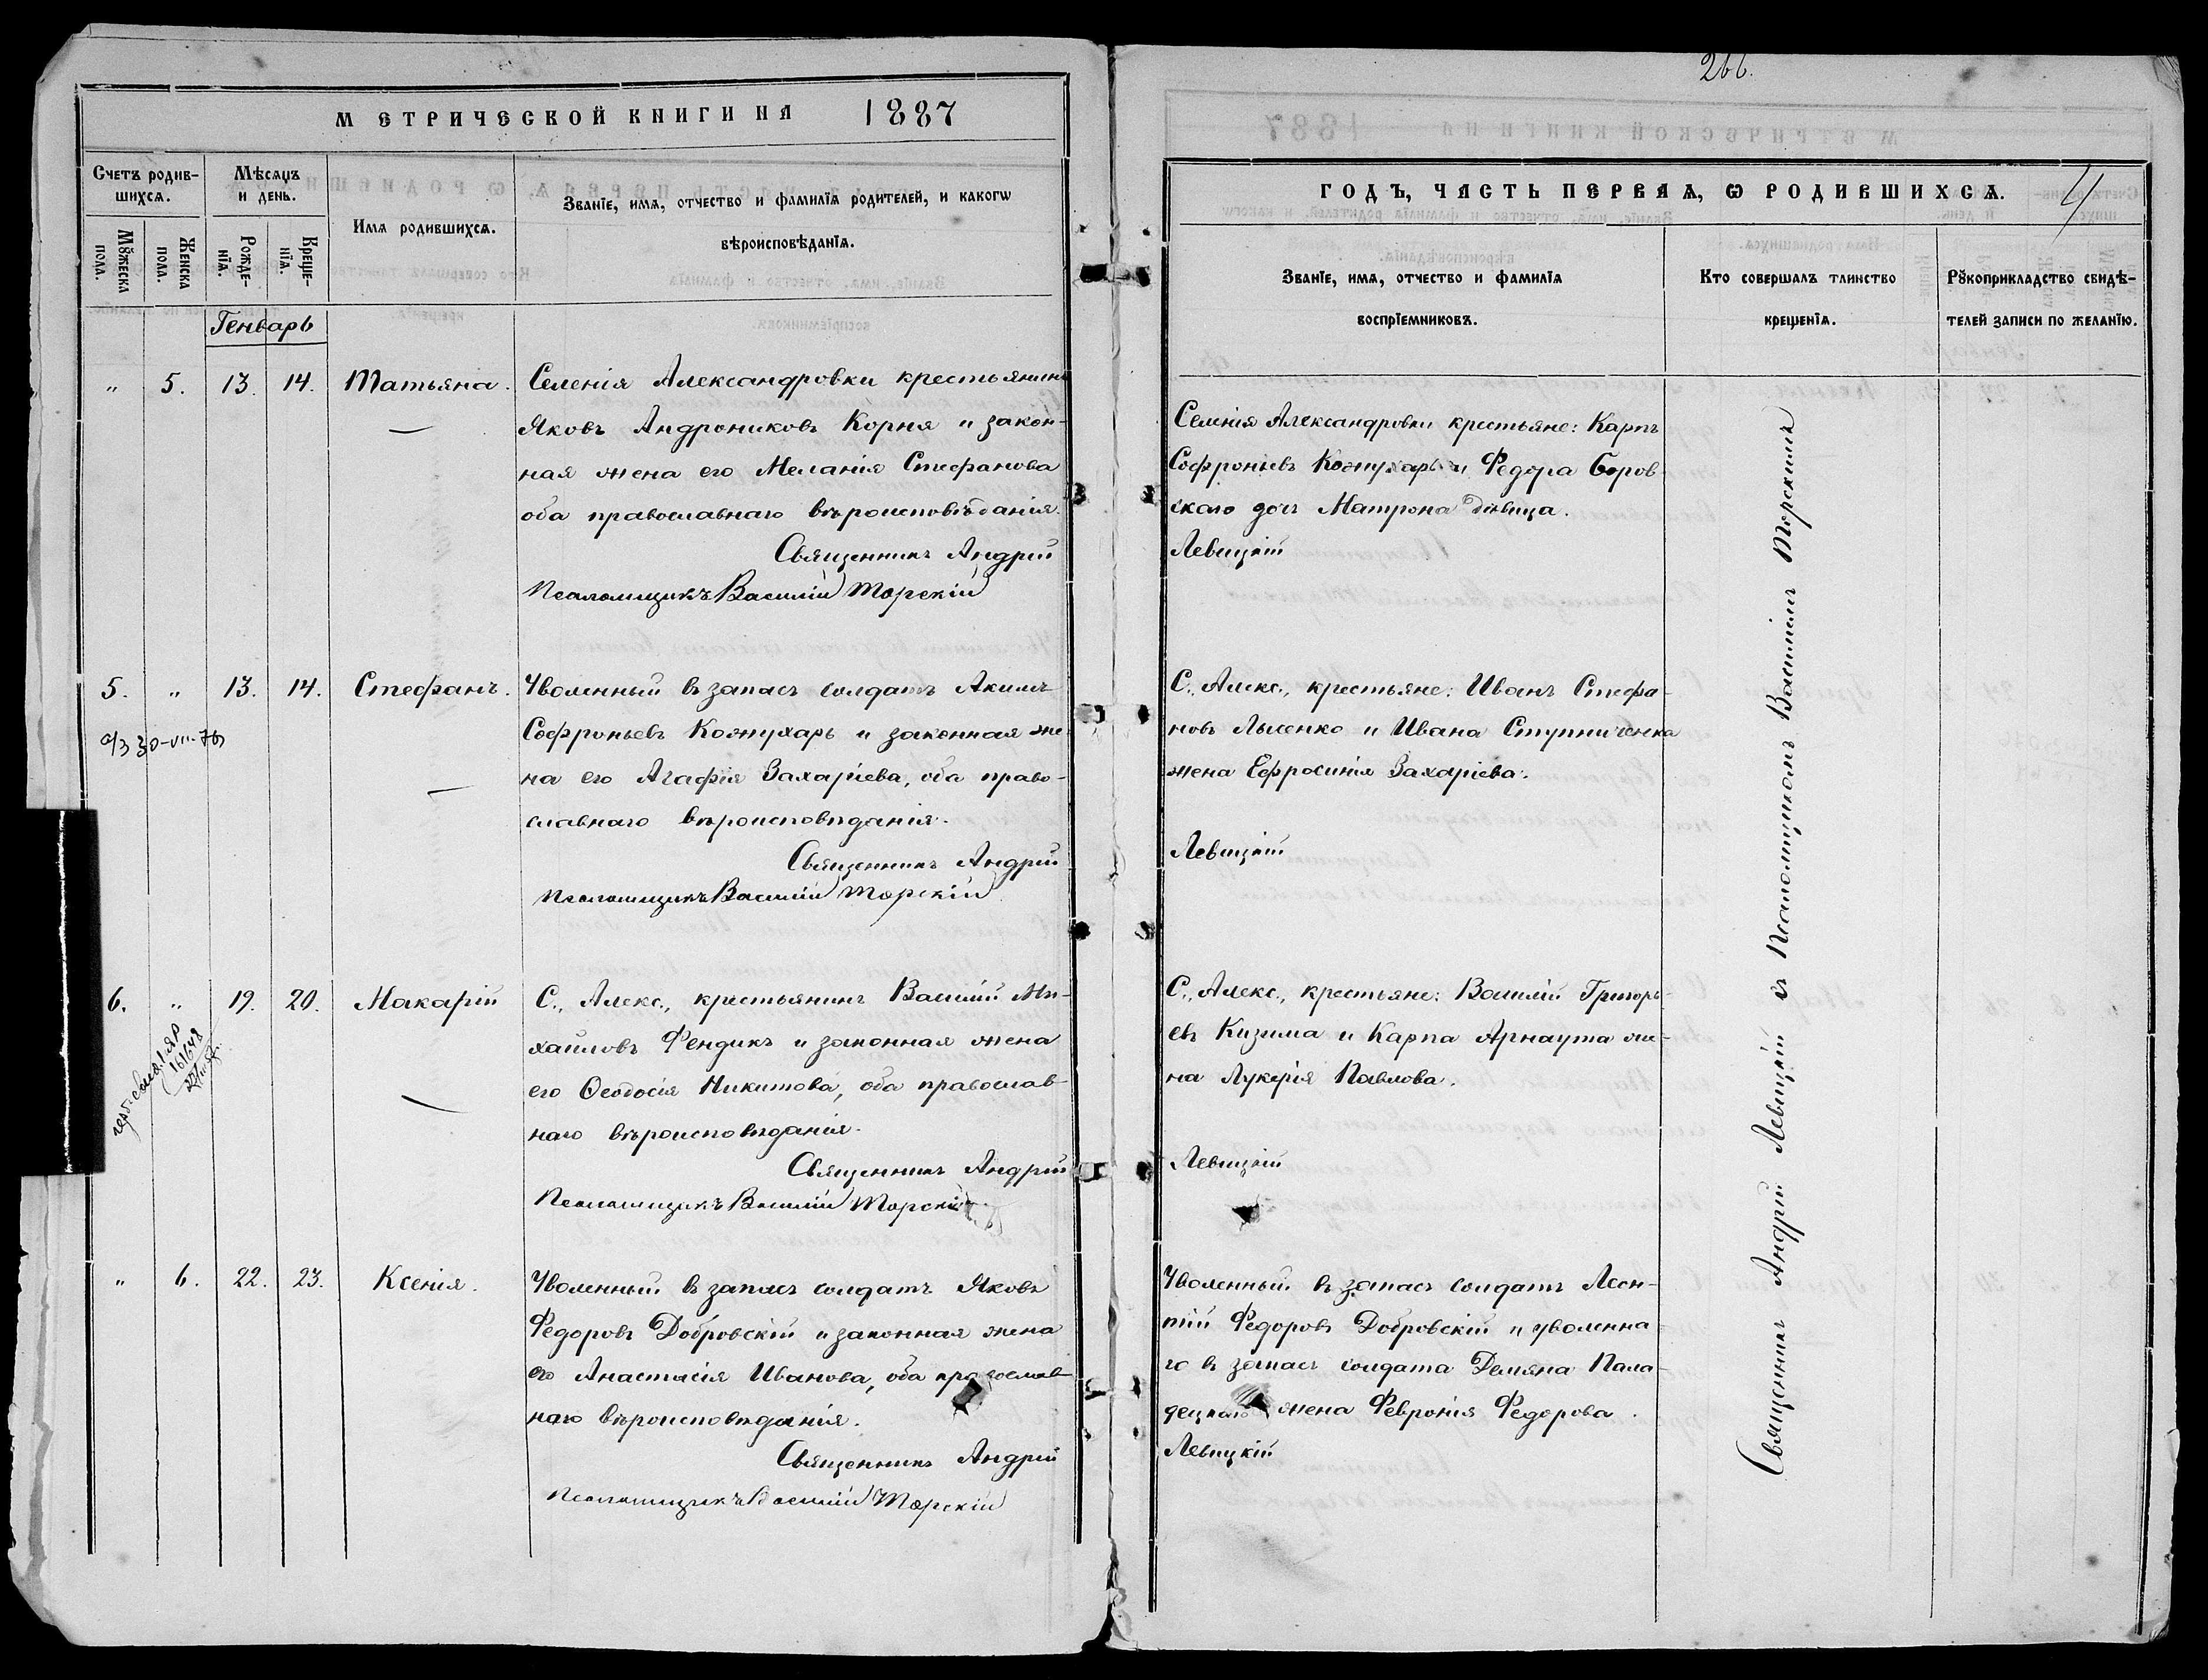 МЕТРИЧЕСКОЙ КНИГИ НА 1887
Счетъ родив-
шихся.
Мѣсяцъ
и день.
Имя родившихся.
Званіе, имя, отчество и фамилія родителей, и какогѡ
вѣроисповѣданія.
Мꙋжеска
пола.
Женска
пола.
Рожде-
нія.
Креще-
нія.
Генварь
„ 5. 13. 14. Татьяна. Селенія Александровки крестьянинъ
Яковъ Андрониковъ Корня и закон-
ная жена его Меланія Стефанова
оба православнаго вѣроисповѣданія.
Священникъ Андрій
Псаломщикъ Василій Торскій
5. „ 13. 14. Стефанъ. Уволенный въ запасъ солдатъ Акимъ
Софроньевъ Кожухарь и законная же-
на его Агафія Захаріева, оба право-
славнаго вѣроисповѣданія.
Священникъ Андрій
Псаломщикъ Василій Торскій
6. „ 19. 20. Макарій С., Алекс., крестьянинъ Василій Ми-
хайловъ Фендикъ и законная жена
его Ѳеодосія Никитова, оба православ-
наго вѣроисповѣданія.
Священникъ Андрій
Псаломщикъ Василій Торскій
„ 6. 22. 23. Ксенія. Уволенный въ запасъ солдатъ Яковъ
Федоровъ Добровскій и законная жена
его Анастасія Иванова, оба православ-
наго вѣроисповѣданія.
Священникъ Андрій
Псаломщикъ Василій Торскій
266.
4
ГОДЪ, ЧАСТЬ ПЕРВАЯ, Ѡ РОДИВШИХСЯ.
Званіе, имя, отчество и фамилія
воспріемниковъ.
Кто совершалъ таинство
крещенія.
Рꙋкоприкладство свидѣ-
телей записи по желанію.
Селенія Александровки крестьяне: Карпъ
Софроньевъ Кожухарь и Федора Боров-
скаго дочь Матрона дѣвица.
Левицкій
С., Алекс., крестьяне: Иванъ Стефа-
новъ Лысенко и Ивана Ступниченка
жена Ефросинія Захаріева.
Левицкій
С., Алекс., крестьяне: Василій Григорь-
евъ Кизима и Карпа Арнаута же-
на Лукерія Павлова.
Левицкій
Уволенный въ запасъ солдатъ Леон-
тій Федоровъ Добровскій и уволенна-
го въ запасъ солдата Демяна Пала-
децкаго жена Февронія Федорова.
Левицкій
Священникъ Андрій Левицкій съ Псаломщикомъ Василіемъ Торскимъ